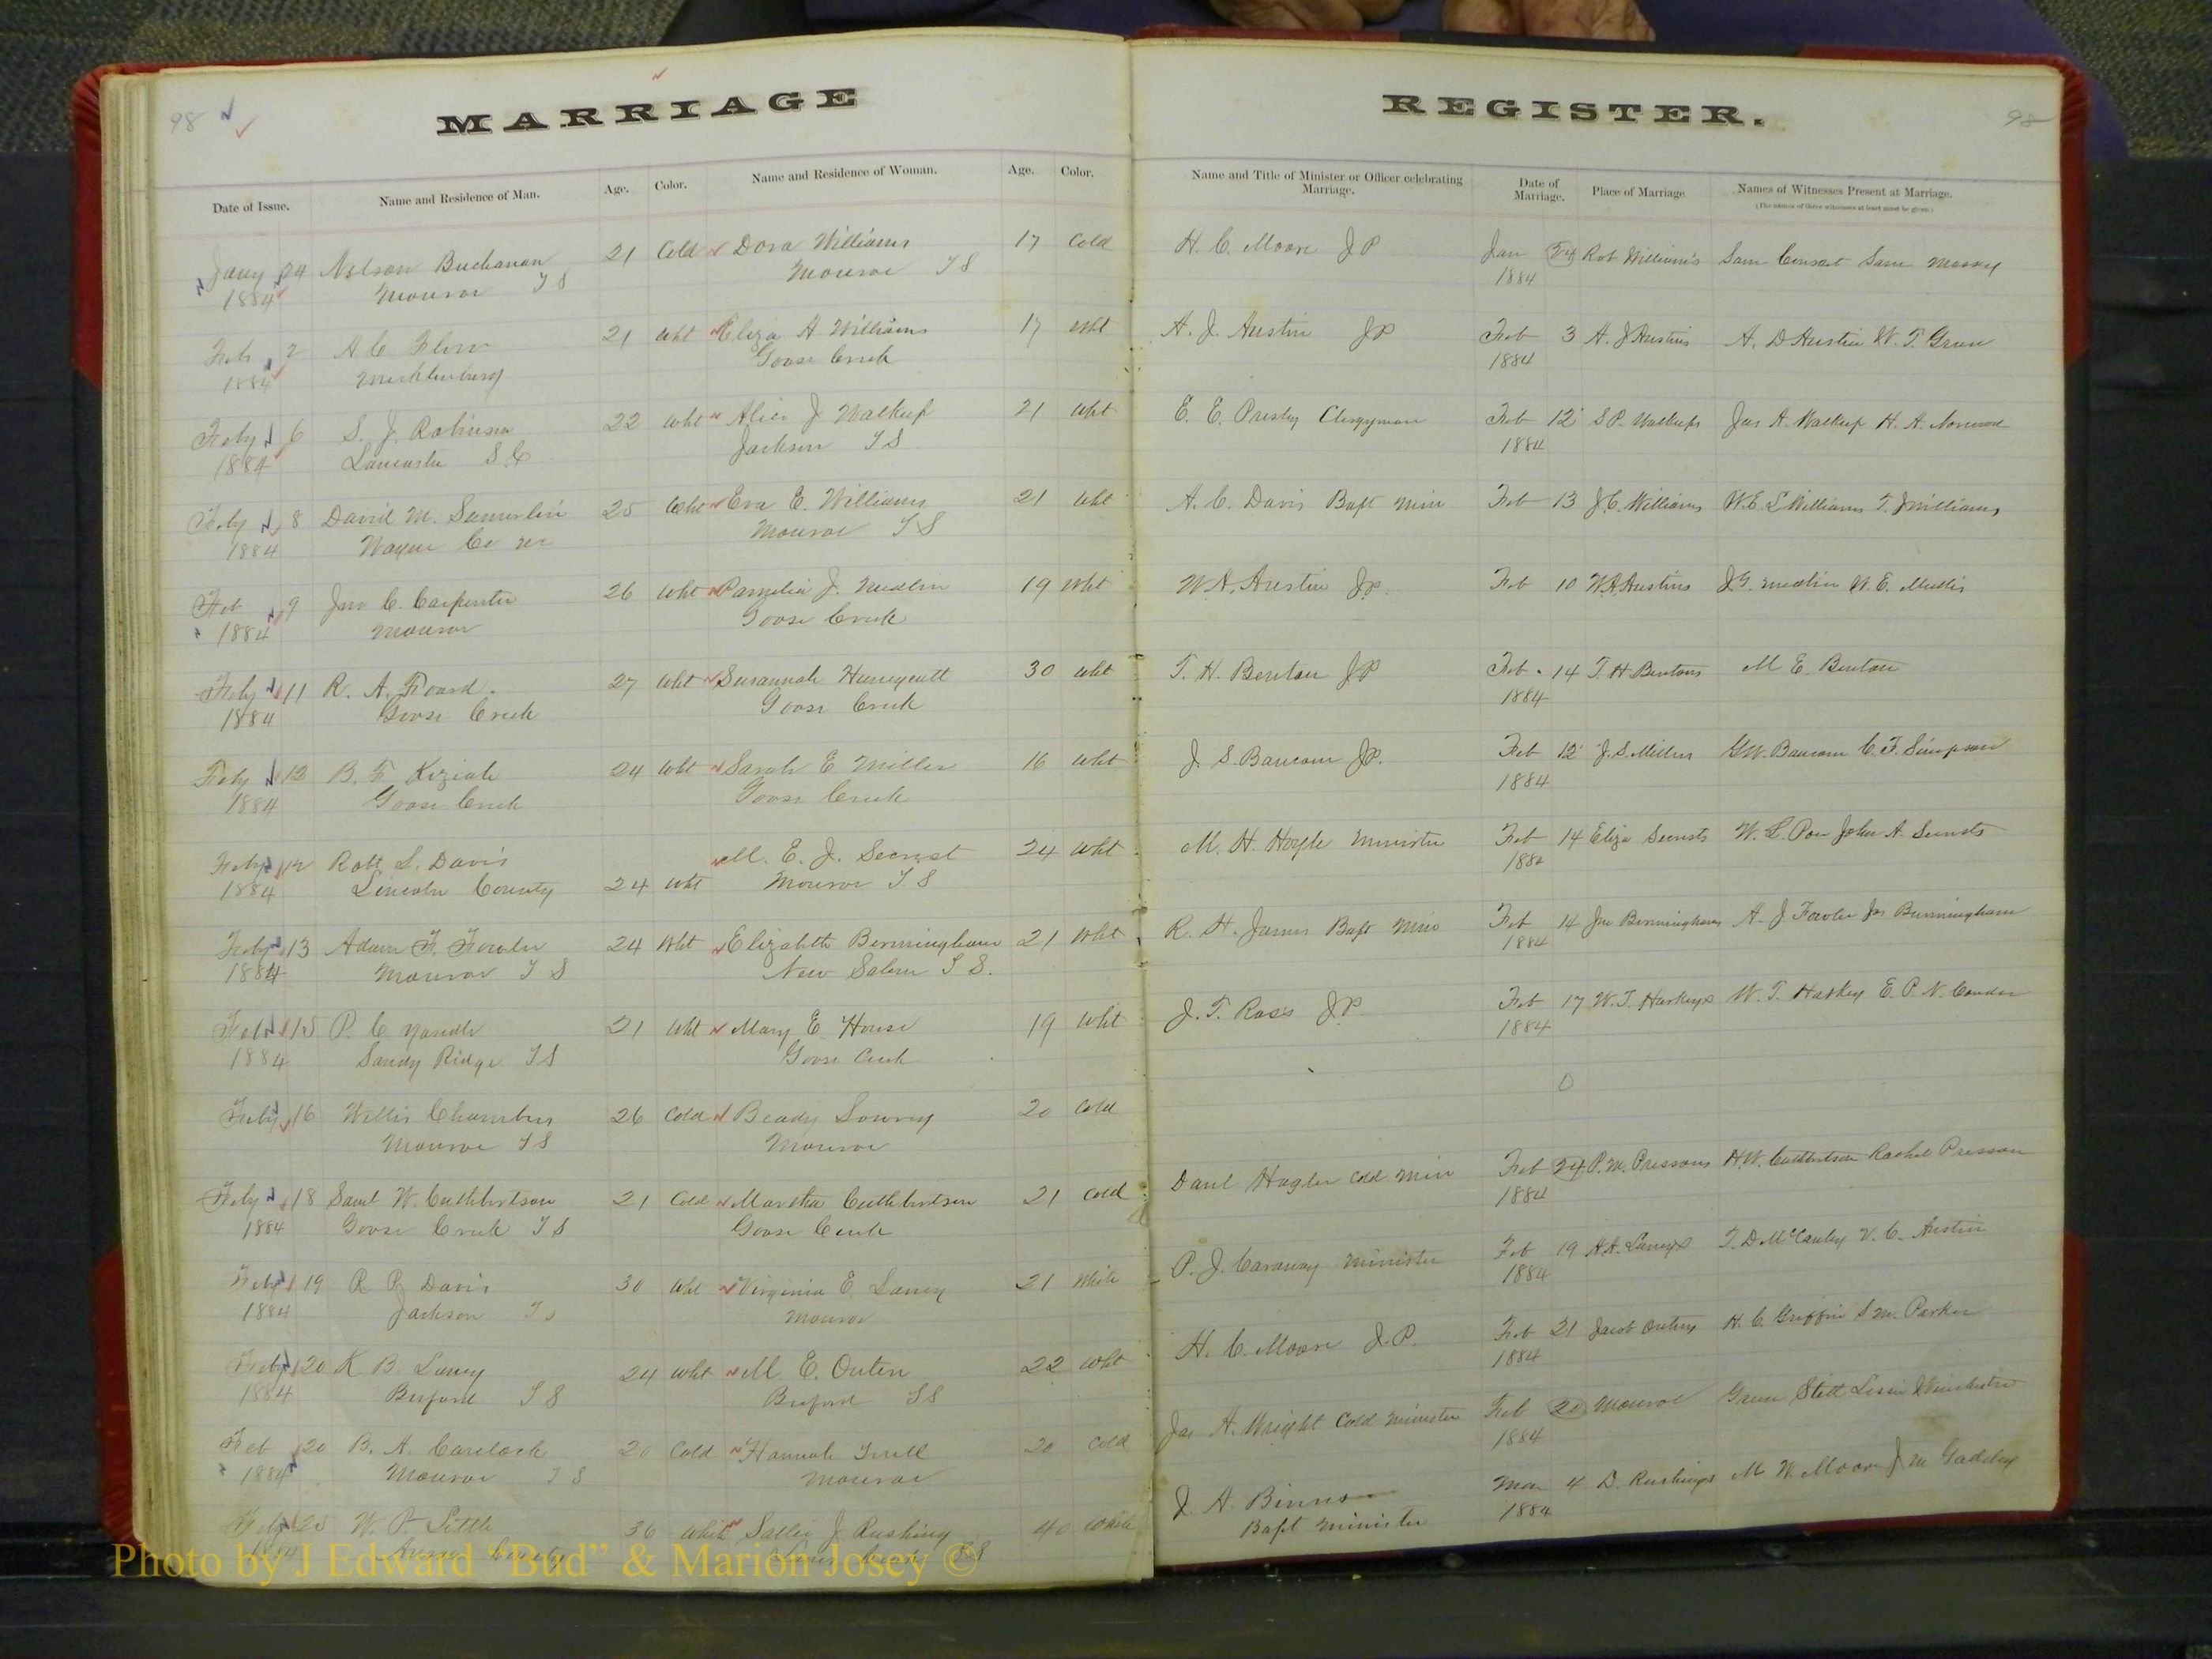 98 98
MARRIAGE REGISTER.
Date of Issue. Name and Residence of Man. Age. Color. Name and Residence of Woman. Age. Color. Name and Title of Minister or Officer celebrating Marriage. Date of Marriage. Place of Marriage Names of Witnesses Present at Marriage.
(The names of three witnesses at least must be given.)
Jany 24 Nelson Buchanan 21 Cold Dora Williams 17 Cold H. C. Moore JP Jan 24 Rob Williams Sam Sam Massey
1884 Monroe TS Monroe TS 1884
Feb 2 A C Flow 21 Wht Eliza A Williams 17 Wht A. J. Austin JP Feb 3 A. J Austins A. D Austin W. T. Green
1884 Mecklenburg Goose Creek 1884
Feby 6 S. J. Robinson 22 Wht Alice J Walkup 21 Wht E. E. Presley Clergyman Feb 12 S P. Walkups Jas A. Walkup H. A.
1884 Lancaster S.C Jackson TS 1884
Feby 8 David M. Sumerlin 25 Wht Eva E. Williams 21 Wht A. C. Davis Bapt Min Feb 13 J. C. Williams W. E. L Williams T. J Williams
1884 Wayne Co NC Monroe TS
Feb 9 Jno C. Carpenter 26 Wht J. Medlin 19 Wht W. A. Austin Jp. Feb 10 W. A. Austins J. G. Medlin W. E. Mullis
1884 Monroe Goose Creek
Feby 11 R. A. Foard. 27 Wht Susannah Huneycutt 30 Wht T. H. Benton JP Feb 14 T. H Bentons M E. Benton
1884 Goose Creek Goose Creek 1884
Feby 12 B. F. Keziah 24 Wht Sarah E Miller 16 Wht J. S. Baucom JP. Feb 12 J. S. Millers G. W. Baucom C. F. Simpson
1884 Goose Creek Goose Creek 1884
Feby 12 Robt S. Davis M. E. J. Secrest 24 Wht M. H. Hoyle Minister Feb 14 Eliza Secrests W. L. Poe John A. Secrests
1884 Lincoln County 24 Wht Monroe TS 1884
Feby 13 Adam F. Fowler 24 Wht Elizabeth Bermingham 21 Wht R. H. James Bapt Min Feb 14 Jno Berminghams A. J Fowler Bermingham
1884 Monroe TS New Salem T S. 1884
Feb 15 P. C Yandle 21 Wht Mary E House 19 Wht J. T. Ross JP Feb 17 W. T. Harkeys W. T. Harkey E. P. N. Conder
1884 Sandy Ridge TS Goose Creek 1884
0
Feby 16 Willis Chambers 26 Cold Beady Lowry 20 Cold
Monroe TS Monroe
Feby 18 Saml W. Cuthbertson 21 Cold Martha Cuthbertson 21 Cold Danl Hagler Cold Min Feb 24 P. M. Pressons H. W. Cuthbertson Rachel Presson
1884 Goose Creek TS Goose Creek 1884
Feby 19 R R Davis 30 Wht Virginia E Laney 21 White P. J. Caraway Minister Feb 19 A. A. Laneys T. D McCauley V. C. Austin
1884 Jackson TS Monroe 1884
Feby 20 K B Laney 24 Wht M E. Outen 22 Wht H. C. Moore J.P. Feb 21 Jacob Outens H. C. Griffin S M. Parker
1884 Buford TS Buford TS 1884
Feb 20 B. A. Carelock 20 Cold Hannah Tyrell 20 Cold Jas A. Wright Cold Minister Feb 20 Monroe Green Stitt Winchester
1884 Monroe TS Monroe 1884
Feby 25 W. P Little 36 White Sallie J Rushing 40 White J. A. Bivens Mar 4 D. Rushings M W. Moore J M Gaddy
1884 Anson County TS Bapt Minister 1884
Photo by J Edward “Bud” & Marion Josey ©